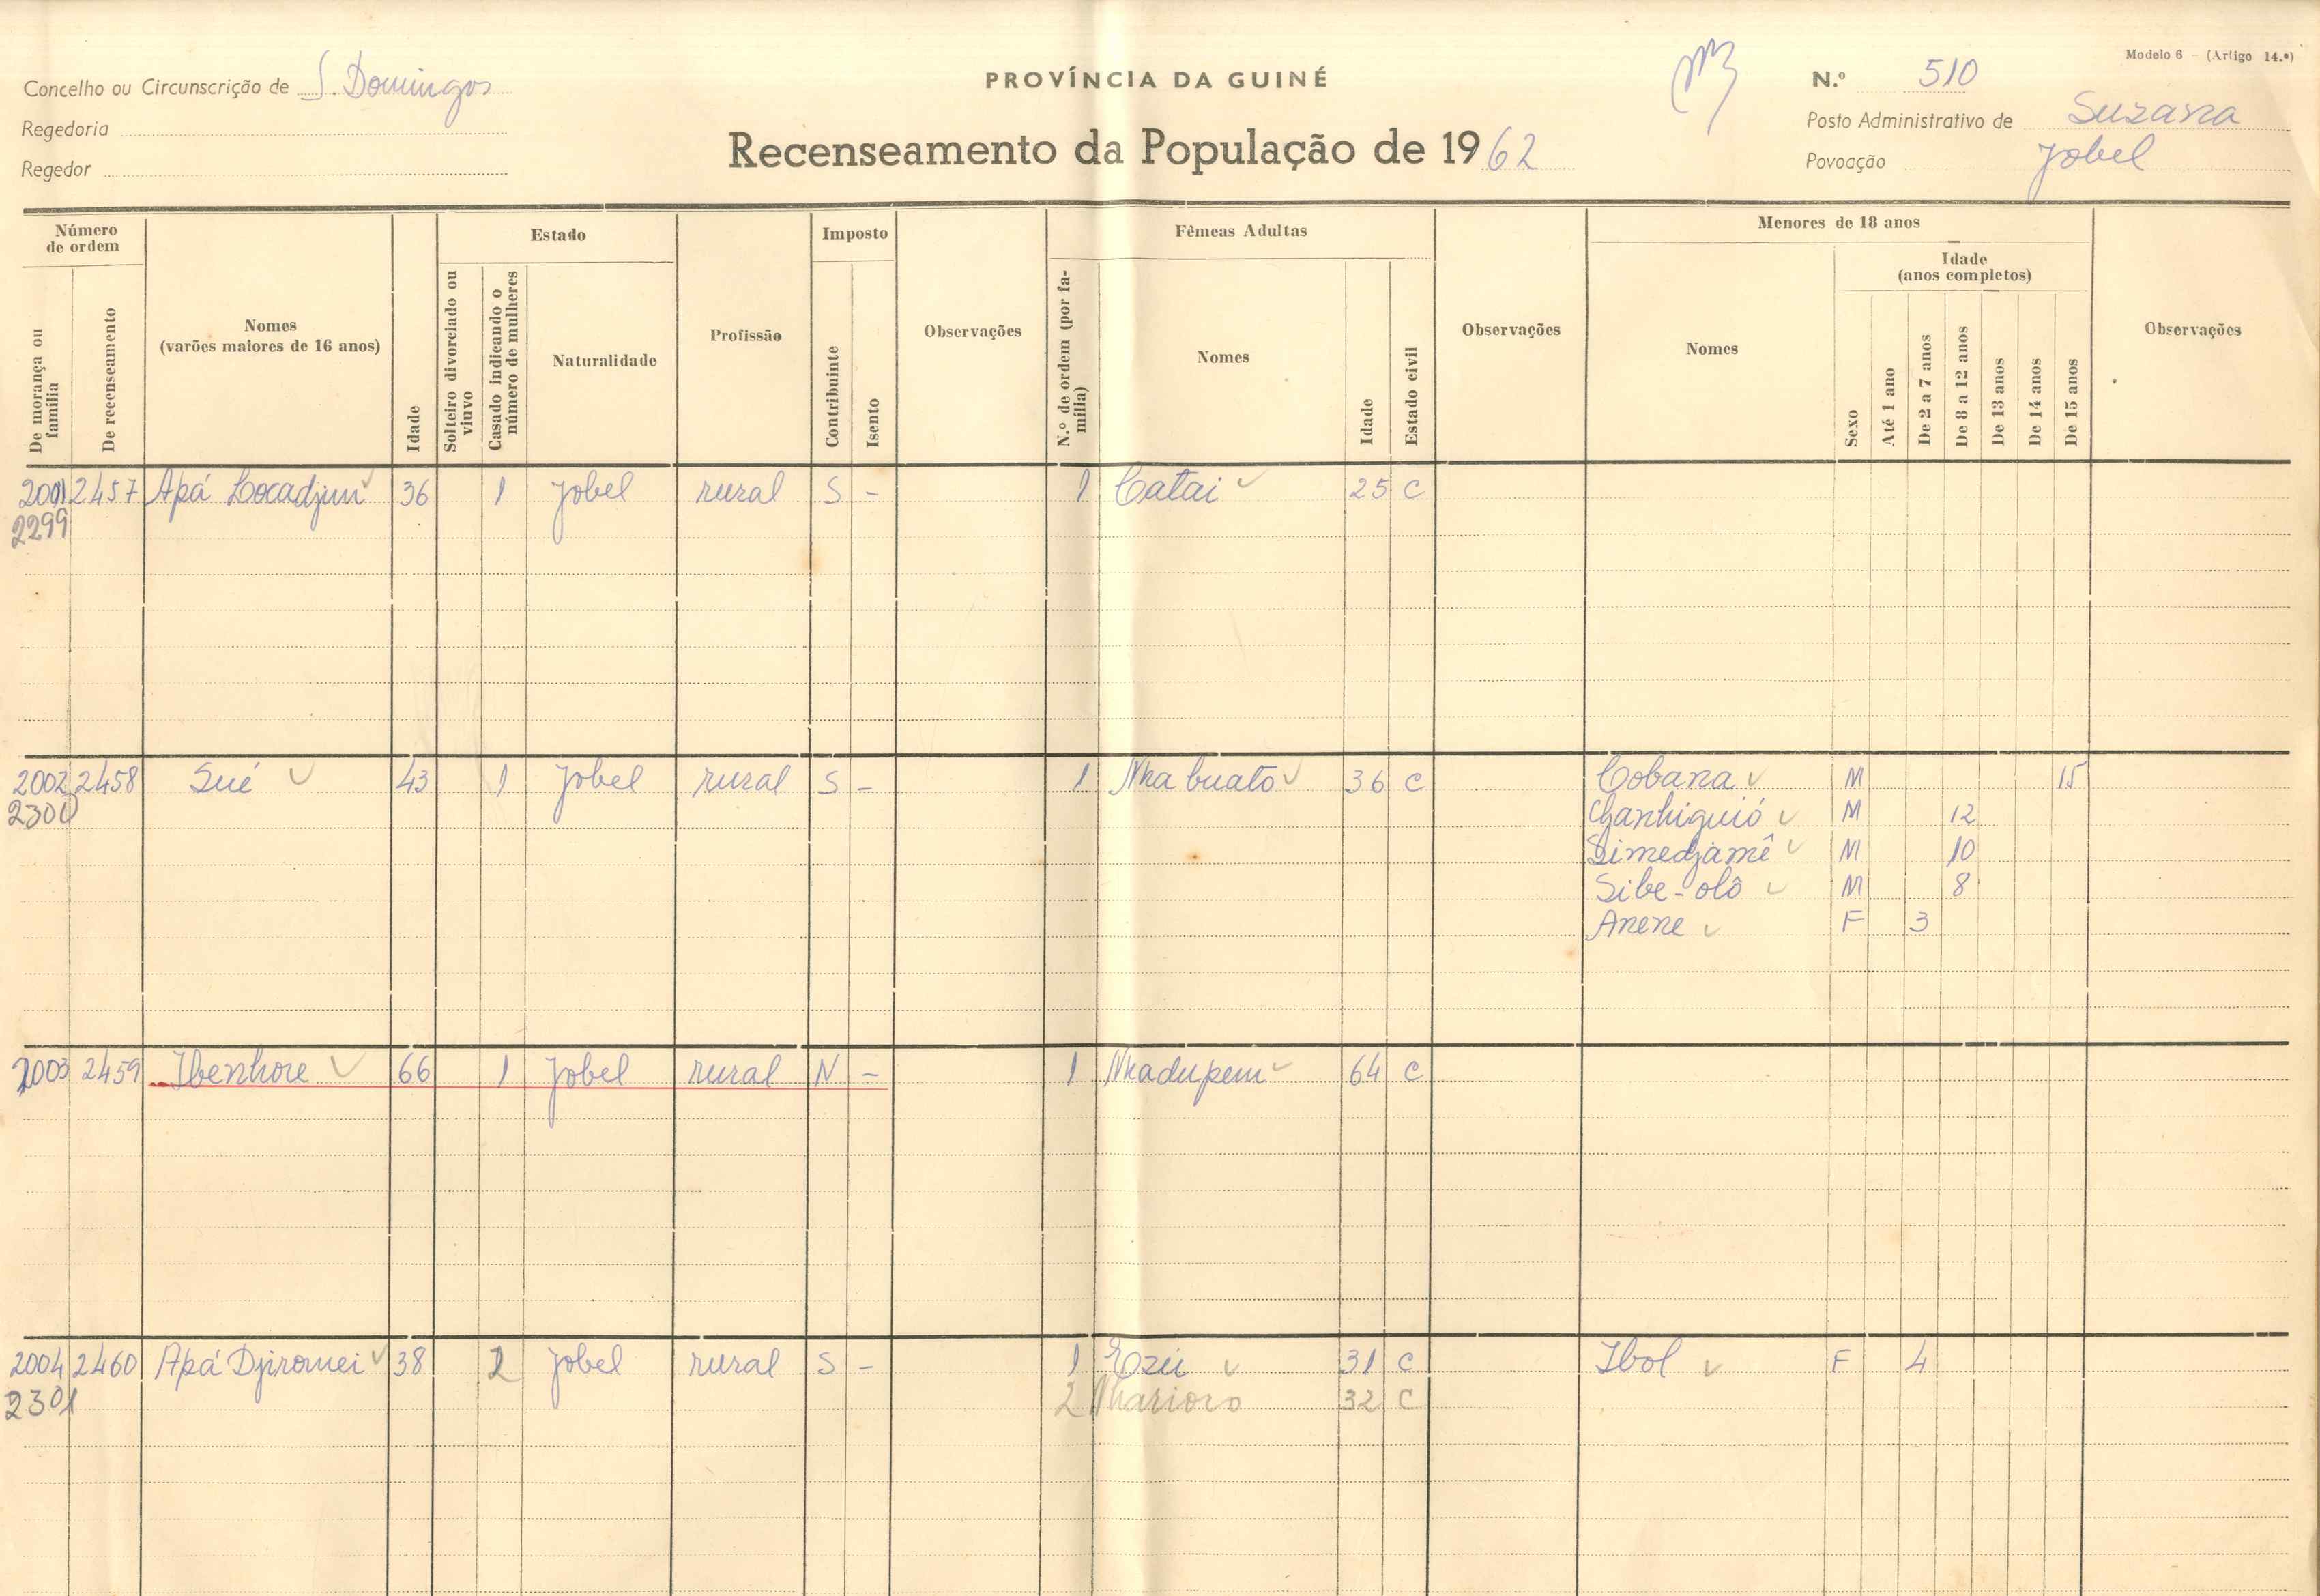 Modelo 6 - (Artigo 14.º)
Concelho ou Circunscrição de S. Domingos
PROVÍNCIA DA GUINÉ
N.º 510
Regedoria
Posto Administrativo de Suzana
Regedor
Recenseamento da População de 1962
Povoação Jobel
Número de ordem
De morança ou família
De recenseamento
Nomes
(varões maiores de 16 anos)
Idade
Estado
Solteiro divorciado ou viuvo
Casado indicando o número de mulheres
Naturalidade
Profissão
Imposto
Contribuinte
Isento
Observações
Fêmeas Adultas
N.º de ordem (por família)
Nomes
Idade
Estado civil
Observações
Menores de 18 anos
Nomes
Sexo
Idade
(anos completos)
Até 1 ano
De 2 a 7 anos
De 8 a 12 anos
De 13 anos
De 14 anos
De 15 anos
Observações
2001 2457 Apá Locadjun 36 1 Jobel rural S - 1 Catai 25 C
2299
2002 2458 Sué 43 1 Jobel rural S - 1 Nha buato 36 C Cobana M 15
2300 Ganhiguió M 12
Simedjamê M 10
Sibe-olô M 8
Anene F 3
2003 2459 Ibenhore 66 1 Jobel rural N - 1 Nhadupem 64 C
2004 2460 Apá Djiromei 38 2 Jobel rural S - 1 Ezú 31 C Ibol F 4
2301 2 Nharioro 32 C